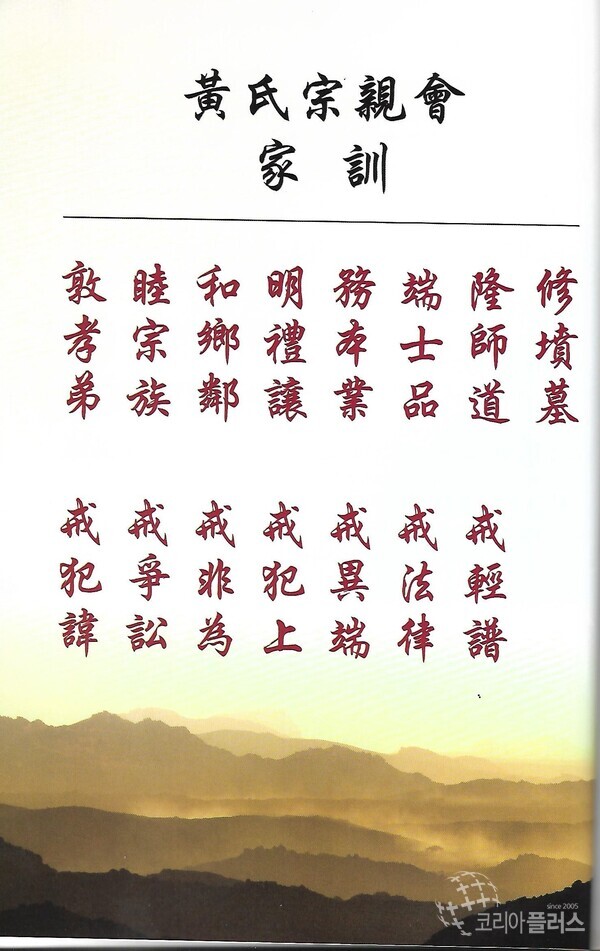 黃氏宗親會
家訓
敦孝弟
睦宗族
和鄉鄰
明禮讓
務本業
端士品
隆師道
修墳墓
戒犯諱
戒爭訟
戒非為
戒犯上
戒異端
戒法律
戒輕譜
since 2005
코리아플러스